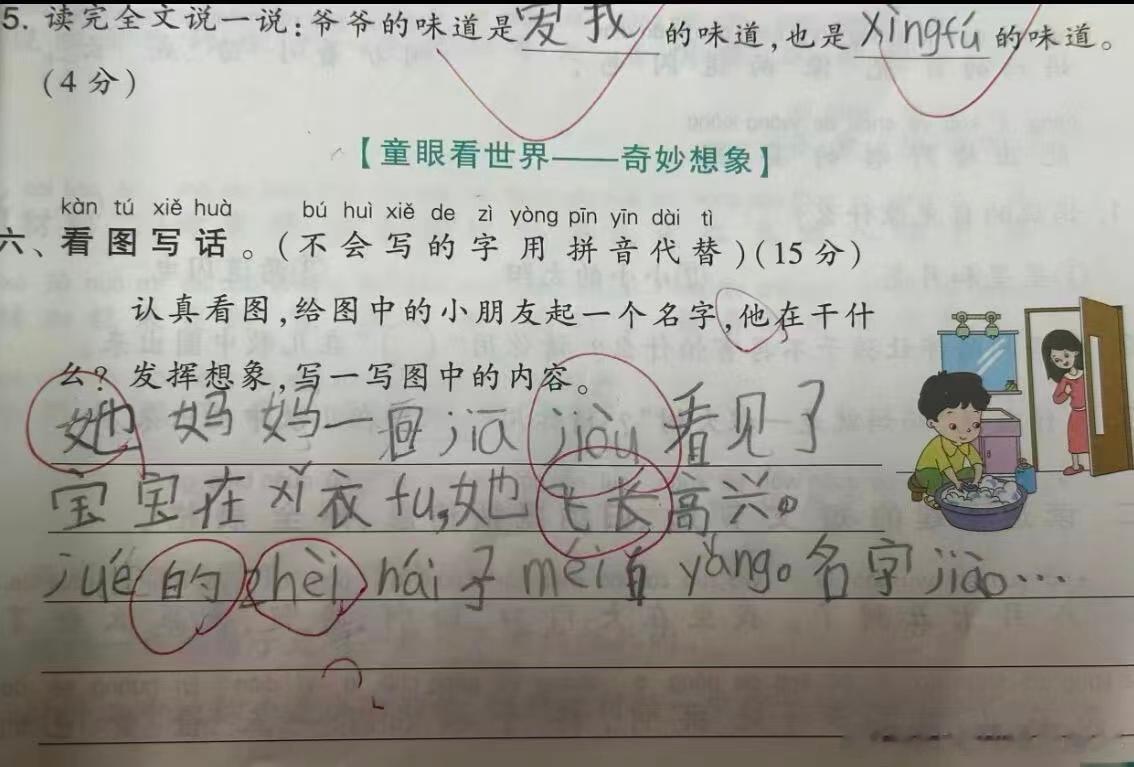 5. 读完全文说一说:爷爷的味道是爱我的味道,也是xìngfú的味道。
(4分)
【童眼看世界——奇妙想象】
kàn tú xiě huà bú huì xiě de zì yòng pīn yīn dài tì
六、看图写话。(不会写的字用拼音代替)(15分)
认真看图,给图中的小朋友起一个名字,他在干什
么?发挥想象,写一写图中的内容。
她妈妈一回jiā jiòu看见了
宝宝在xǐ衣fu,她飞长高兴。
jué的zhèi hái子méi白yǎng。名字jiào…